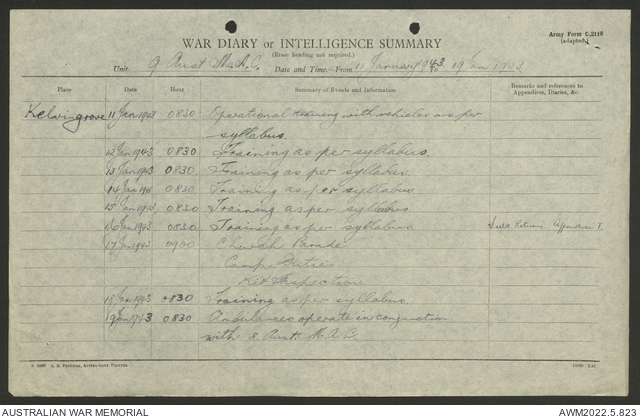 Army Form C.2118
(adapted.)
WAR DIARY or INTELLIGENCE SUMMARY
(Erase heading not required.)
Unit 9 Aust M.A.C. Date and Time—From 11 January 1943 to 19 Jan 1943
Place Date Hour Summary of Events and Information Remarks and references to Appendices, Diaries, &c.
Kelvingrove 11 Jan 1943 0830 Operational training with vehicles as per
syllabus.
12 Jan 1943 0830 Training as per syllabus.
13 Jan 1943 0830 Training as per syllabus.
14 Jan 1943 0830 Training as per syllabus
15 Jan 1943 0830 Training as per syllabus.
16 Jan 1943 0830 Training as per syllabus. Field Returns Appendix
17 Jan 1943 0900 Church Parade
Camp Duties
Kit Inspection
18 Jan 1943 0830 Training as per syllabus.
19 Jan 1943 0830 Ambulances operate in conjunction
with 8 Aust. M.A.C.
AUSTRALIAN WAR MEMORIAL AWM2022.5.823